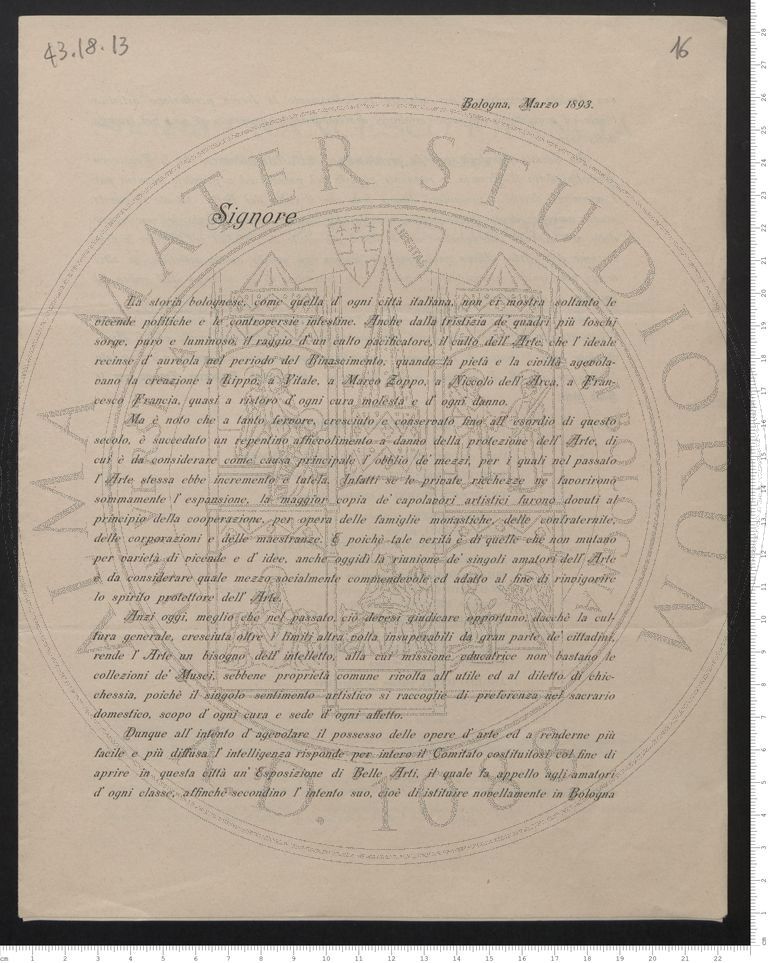 43.18.13
16
Bologna, Marzo 1893.
Signore
La storia bolognese, come quella d' ogni città italiana, non ci mostra soltanto le
vicende politiche e le controversie intestine. Anche dalla tristizia de' quadri più foschi
sorge, puro e luminoso, il raggio d' un culto pacificatore, il culto dell' Arte, che l' ideale
recinse d' aureola nel periodo del Rinascimento, quando la pietà e la civiltà agevola-
vano la creazione a Lippo, a Vitale, a Marco Zoppo, a Niccolò dell' Arca, a Fran-
cesco Francia, quasi a ristoro d' ogni cura molesta e d' ogni danno.
Ma è noto che a tanto fervore, cresciuto e conservato fino all' esordio di questo
secolo, è succeduto un repentino affievolimento a danno della protezione dell' Arte, di
cui è da considerare come causa principale l' obblio de' mezzi, per i quali nel passato
l' Arte stessa ebbe incremento e tutela. Infatti se le private ricchezze ne favorirono
sommamente l' espansione, la maggior copia de' capolavori artistici furono dovuti al
principio della cooperazione, per opera delle famiglie monastiche, delle confraternite,
delle corporazioni e delle maestranze. E poichè tale verità è di quelle che non mutano
per varietà di vicende e d' idee, anche oggidì la riunione de' singoli amatori dell' Arte
è da considerare quale mezzo socialmente commendevole ed adatto al fine di rinvigorire
lo spirito protettore dell' Arte.
Anzi oggi, meglio che nel passato, ciò devesi giudicare opportuno, dacchè la cul-
tura generale, cresciuta oltre i limiti altra volta insuperabili da gran parte de' cittadini,
rende l' Arte un bisogno dell' intelletto, alla cui missione educatrice non bastano le
collezioni de' Musei, sebbene proprietà comune rivolta all' utile ed al diletto di chic-
chessia, poichè il singolo sentimento artistico si raccoglie di preferenza nel sacrario
domestico, scopo d' ogni cura e sede d' ogni affetto.
Dunque all' intento d' agevolare il possesso delle opere d' arte ed a renderne più
facile e più diffusa l' intelligenza risponde per intero il Comitato costituitosi col fine di
aprire in questa città un' Esposizione di Belle Arti, il quale fa appello agli amatori
d' ogni classe, affinchè secondino l' intento suo, cioè di istituire novellamente in Bologna
ALMA MATER STUDIORUM
A.D. 1088
LIBERTAS